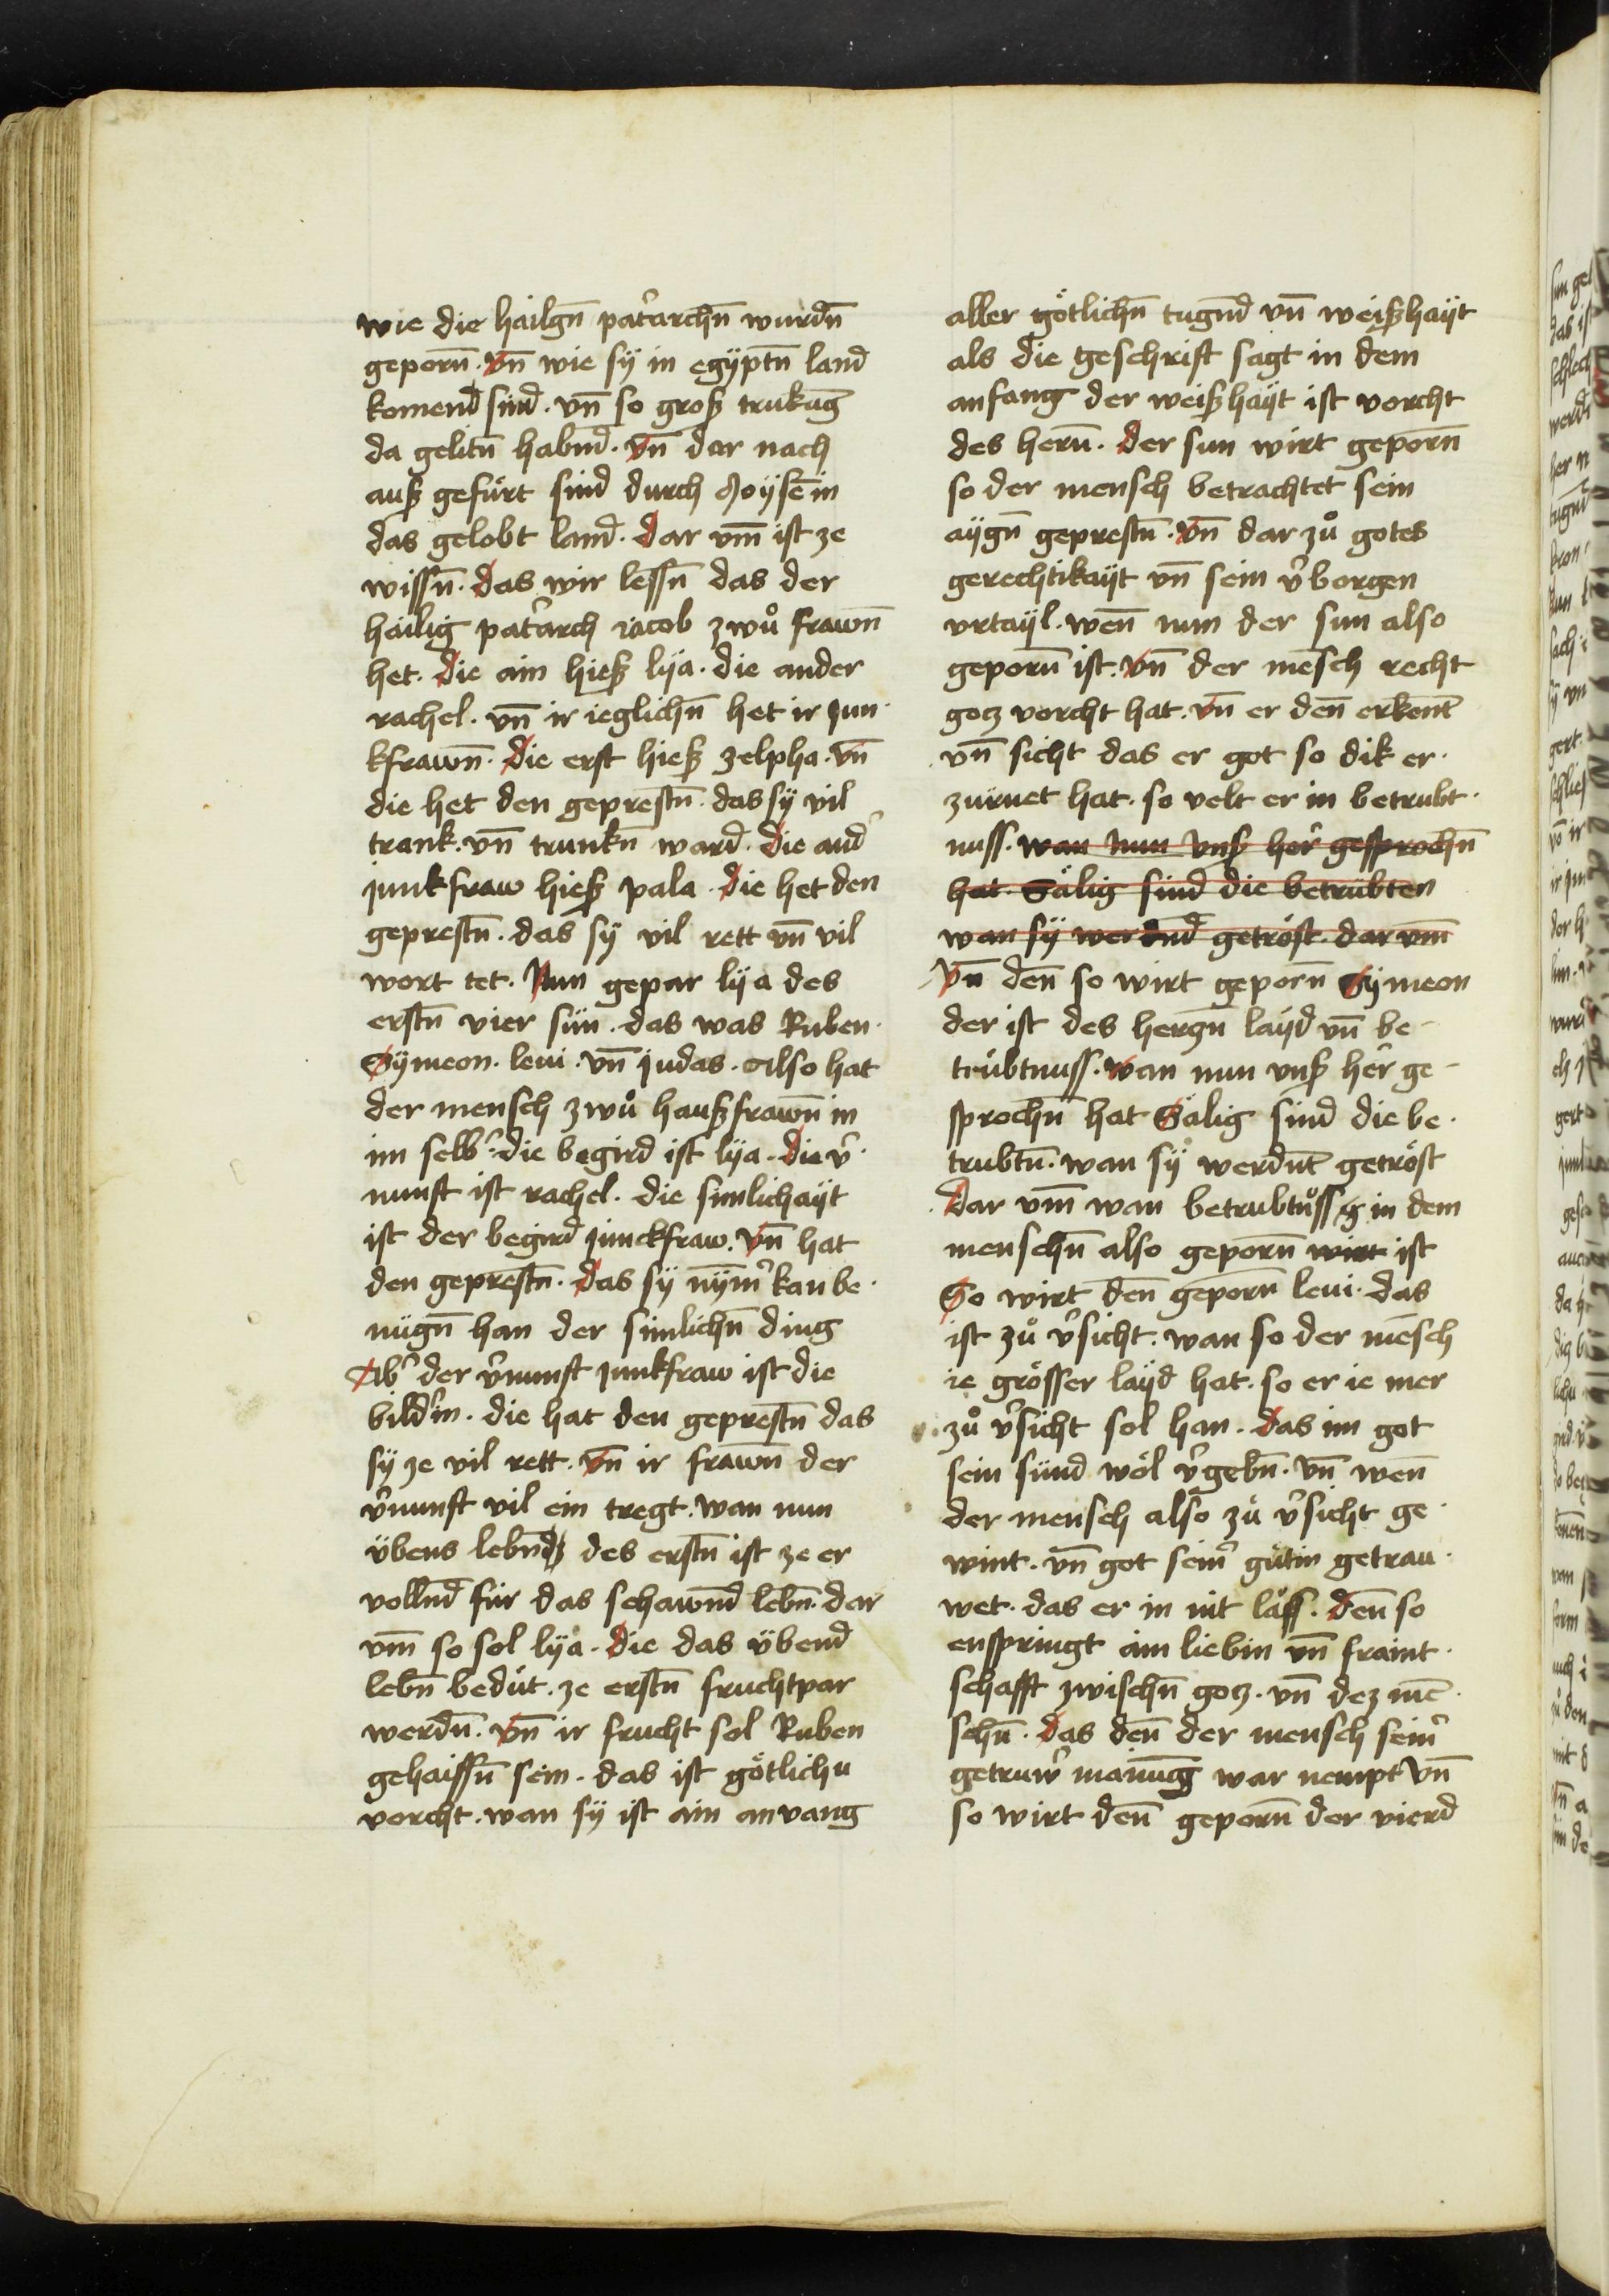 wie die hailgn̄ pat͛archn̄ wurdn̄
geporn̄ . vn̄ wie sÿ in egÿptn̄ land
komend sind . vn̄ so groß trukūg
da gelitn̄ habnd . vn̄ dar nach
auß gefürt sind durch Moÿsē in
das gelobt land . dar vm̄ ist ze
wissn̄ . das wir lessn̄ das der
hailig pat͛arch iacob zwů frawn̄
het . die ain hieß lÿa . die ander
rachel . vn̄ ir ieglichn̄ het ir jun
kfrawn̄ . Die erst hieß zelpha . vn̄
die het den geprestn̄ . das sÿ vil
trank . vn̄ trunkn̄ ward . die and͛
junkfraw hieß pala . die het den
geprestn̄ . das sÿ vil rett vn̄ vil
wort tet . Nun gepar lÿa des
erstn̄ vier sün . das was Ruben .
Sÿmeon . leui . vn̄ judas . Also hat
der mensch zwů haußfrawn̄ in
im selb͛ . die begird ist lÿa . die v͛
nunft ist rachel . die sinlichaÿt
ist der begird junckfraw . vn̄ hat
den geprestn̄ . das sÿ nÿm͛ kan be
nügn̄ han der sinlichn̄ ding
Ab͛ der v͛nunft junkfraw ist die
bild͛in . die hat den geprestn̄ das
sÿ ze vil rett . vn̄ ir frawn̄ der
v͛nunft vil ein tregt . wan nun
übens lebndz des erstn̄ ist ze er
vollnd für das schawnd lebn̄ . dar
vm̄ so sol lÿa . die das übend
lebn̄ bedüt . ze erstn̄ fruchtpar
werdn̄ . vn̄ ir frucht sol Ruben
gehaissn̄ sein . das ist götlichu
vorcht . wan sÿ ist ain anvang
aller götlichn̄ tugnd vn̄ weißhaÿt
als die geschrift sagt in dem
anfang der weißhaÿt ist vorcht
des hern̄ . der sun wirt geporn̄
so der mensch betrachtet sein
aÿgn̄ geprestn̄ . vn̄ dar zů gotes
gerechtikaÿt vn̄ sein v͛borgen
vrtaÿl . wen̄ nun der sun also
geporn̄ ist . vn̄ der mēsch recht
gocz vorcht hat . vn̄ er den̄ erkent
vn̄ sicht das er got so dik er
zürnet hat . so velt er in betrubt
nuss . wan nun vnß her͛ gesprochn̄
hat . Sälig sind die betrübten
wan sÿ werdnd getröst . dar vm̄
vn̄ den̄ so wirt geporn̄ Sÿmeon
der ist des herczn̄ laÿd vn̄ be
trübtnuss . wan nun vnß her͛ ge
sprochn̄ hat Sälig sind die be
trubtn̄ . wan sÿ werdnt getröst
Dar vm̄ wan betrubtnůss in dem
menschn̄ also geporn̄ wirt ist
So wirt den̄ geporn̄ leui . das
ist zů v͛sicht . wan so der mēsch
ie grösser laÿd hat . so er ie mer
zů v͛sicht sol han . das im got
sein sünd wöl v͛gebn̄ . vn̄ wen̄
der mensch also zů v͛sicht ge
wint . vn̄ got sein͛ gütin getrau
wet . das er in nit läss . den̄ so
enspringt ain liebin vn̄ fraint
schafft zwischn̄ gocz . vn̄ dez mē
schn̄ . das den̄ der mensch sein͛
getruw͛ mainūg war nempt vn̄
so wirt den̄ geporn̄ der vierd